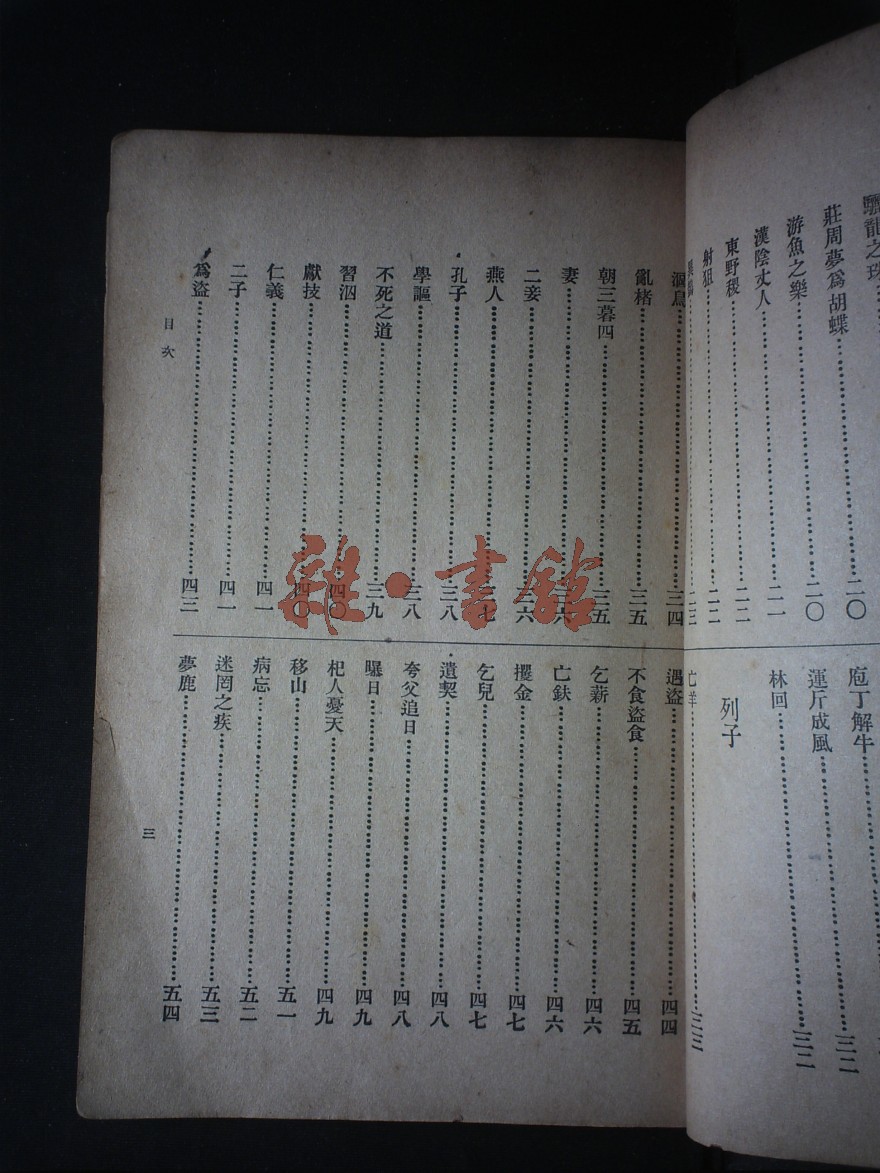 莊周夢爲胡蝶……二〇
游魚之樂……二〇
漢陰丈人……二一
東野稷……二二
射狙……二二
庖丁解牛
運斤成風……三二
林回……三二
列子
亡羊……三三
漚鳥……三四
亂楮……三五
朝三暮四……三五
妻……三六
二妾……三六
燕人……三七
孔子……三八
學謳……三八
不死之道……三九
習泅……四〇
獻技……四〇
仁義……四一
二子……四一
爲盜……四三
遇盜……四四
不食盜食……四五
乞薪……四六
亡鈇……四六
攫金……四七
乞兒……四七
遺契……四八
夸父追日……四八
曝日……四九
杞人憂天……四九
移山……五一
病忘……五二
迷罔之疾……五三
夢鹿……五四
目次
三
雜·書館